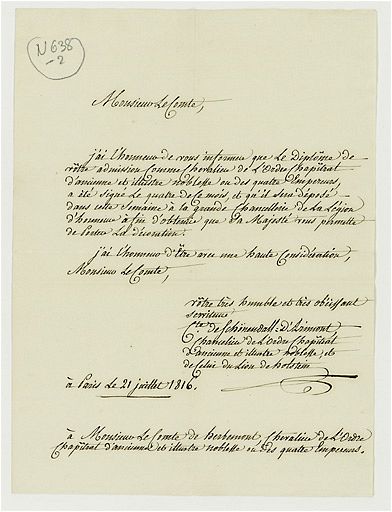 N 638
-2
Monsieur Le Comte,
j'ai l'honneur de vous informer que Le Diplôme de
vôtre admission Comme Chevalier de L'Ordre Chapitral
d'ancienne et illustre noblesse ou des quatre Empereurs,
a été signé Le quatre de Ce mois, et qu'il sera déposé
dans cette semaine à la grande Chancellerie de La Légion
d'honneur à fin d'obtenir que Sa Majesté vous permette
de Porter La décoration.
j'ai L'honneur d'Être avec une haute Considération,
Monsieur Le Comte,
vôtre très humble et très obéissant
serviteur
Cte. de
Chancelier de L'Ordre Chapitral
d'ancienne et illustre noblesse et
de Celui du Lion de holstein
à Paris Le 21 juillet 1816.
à Monsieur Le Comte de herbemont, Chevalier de L'Ordre
Chapitral d'ancienne et illustre noblesse ou des quatre Empereurs.